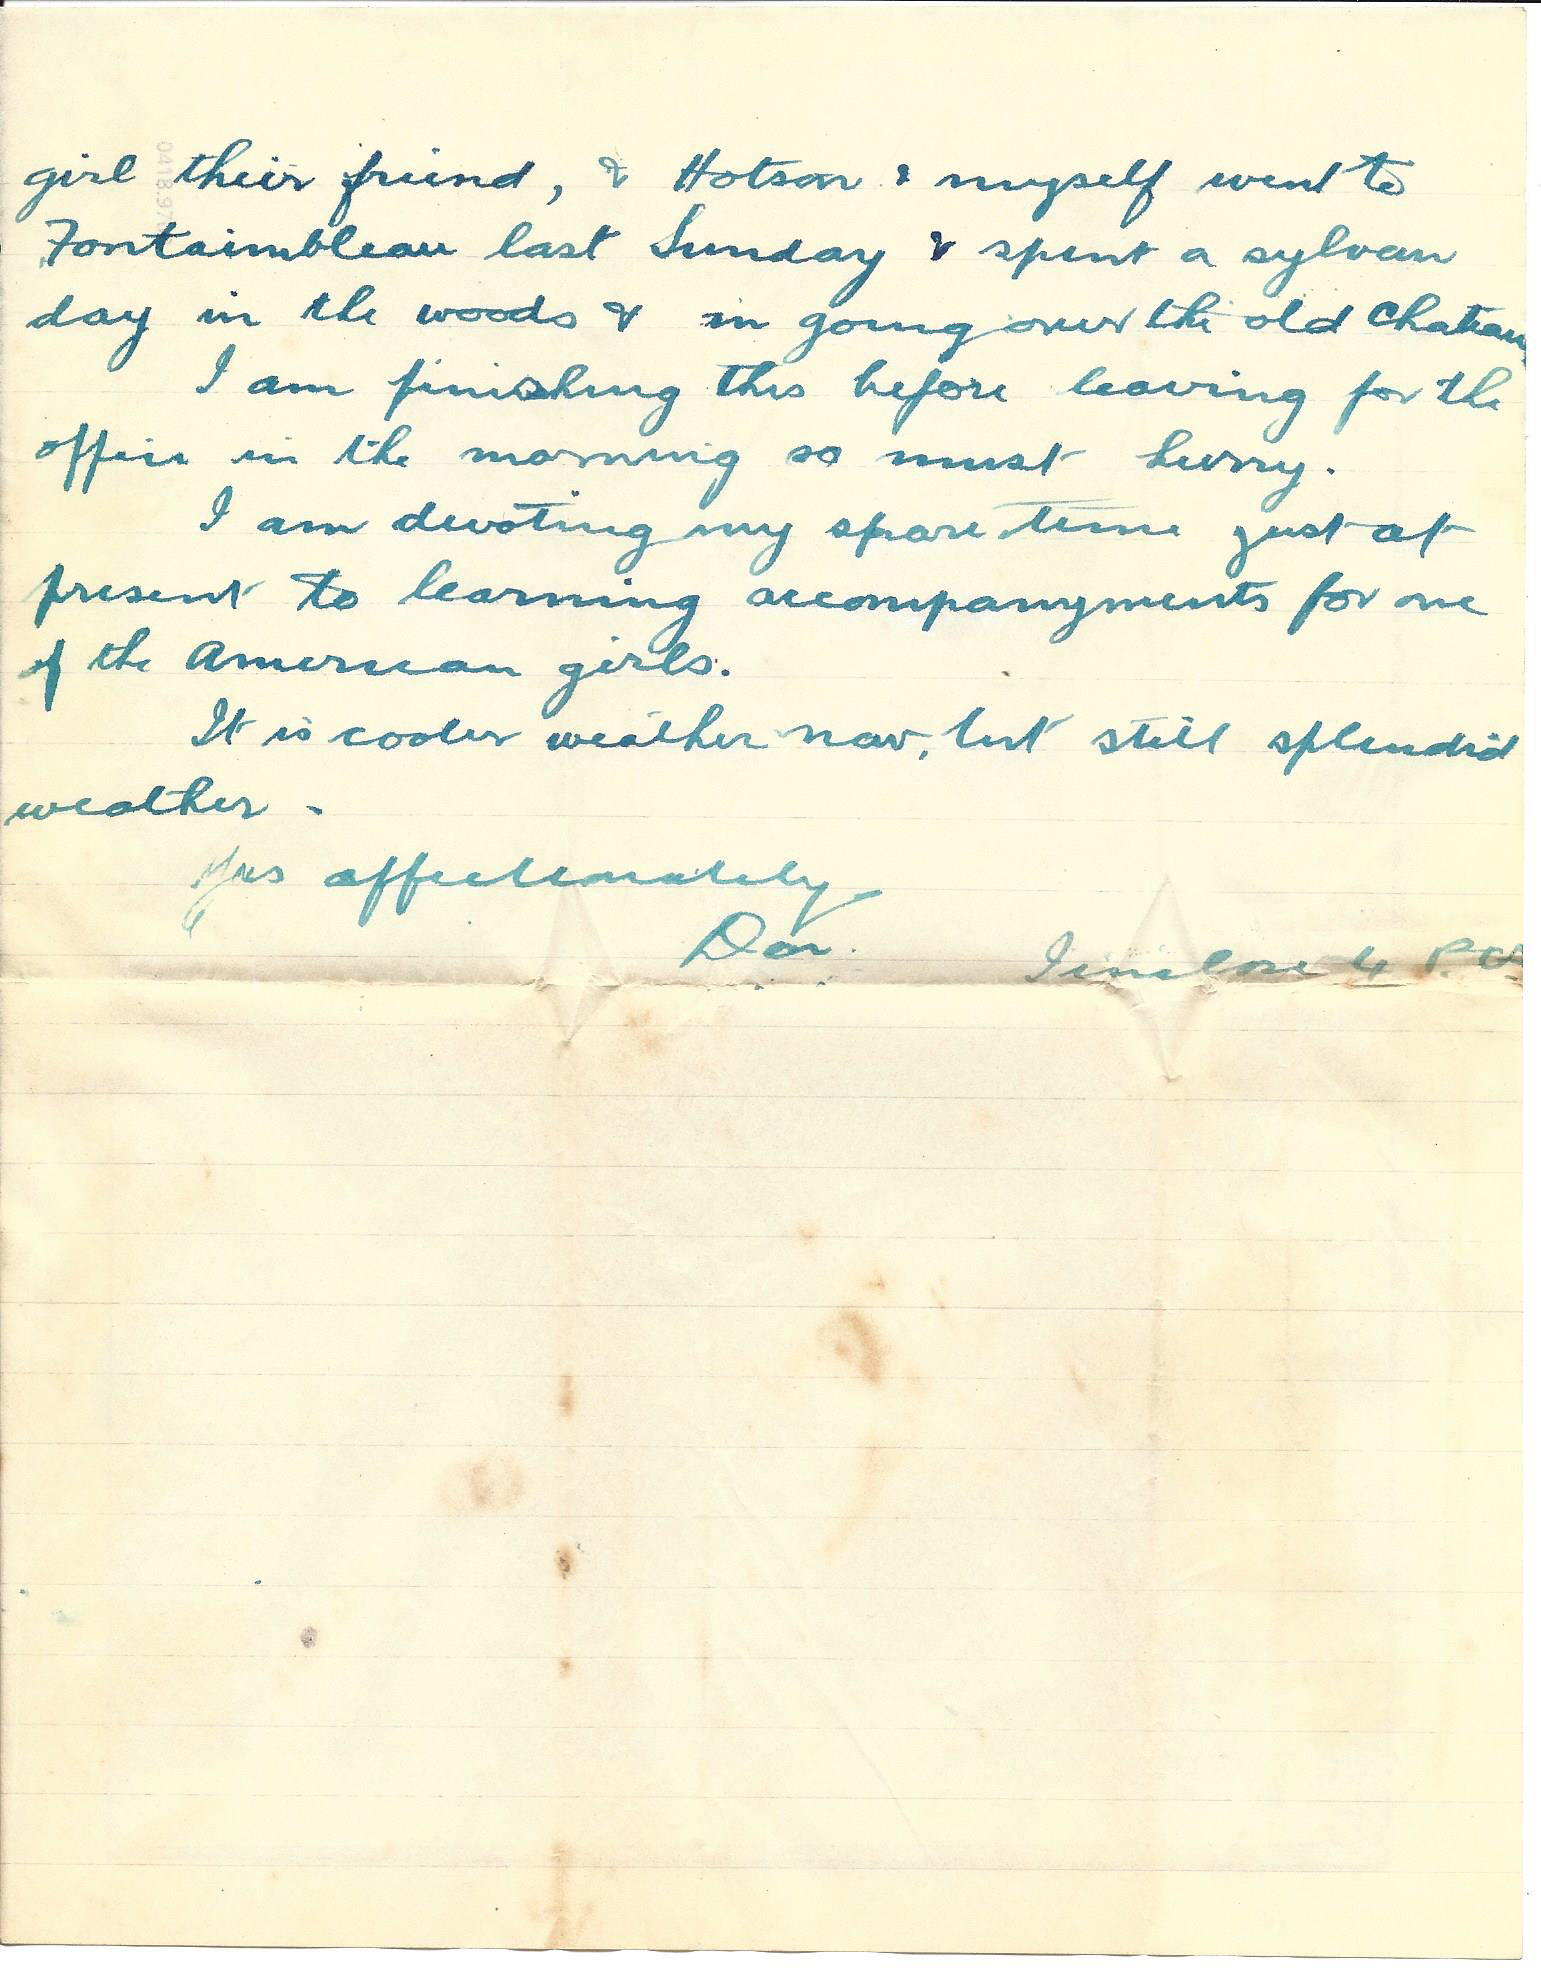 girl their friend, & Hotson & myself went to
Fontaimbleau last Sunday & spent a sylvan
day in the woods & in going over the old Chateau
I am finishing this before leaving for the
office in the morning so must hurry.
I am devoting my spare time just at
present to learning accompanyments for one
of the American girls.
It is cooler weather now, but still splendid
weather.
Yrs affectionately
Don.
I enclose 4 P.C.